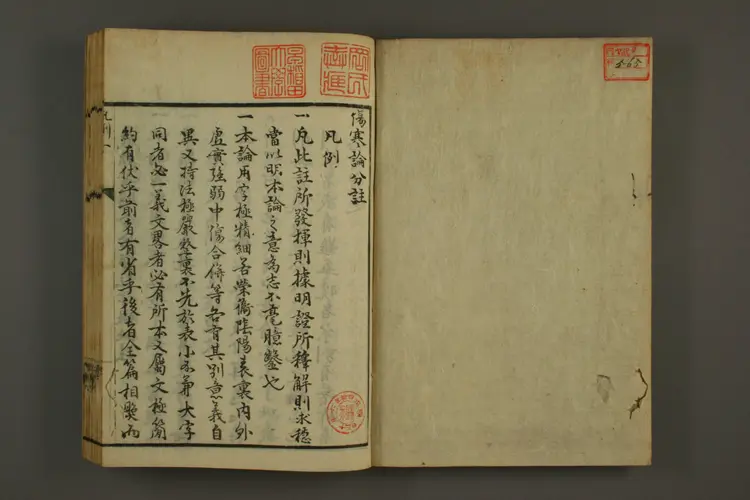 傷寒論分註
凡例
一凡此註所發揮則據明證所釋解則求穩
當以明本論之意為志不毫臆鑿也
一本論用字極精細若榮衞陰陽表裏內外
虛實強弱中傷合併等各有其別意義自
異又持法極嚴整裏不先於表小不兼大字
同者必一義文畧者必有所本又屬文極簡
約有伏乎前者有省乎後者全篇相照而
凡例一
早稻田大學圖書